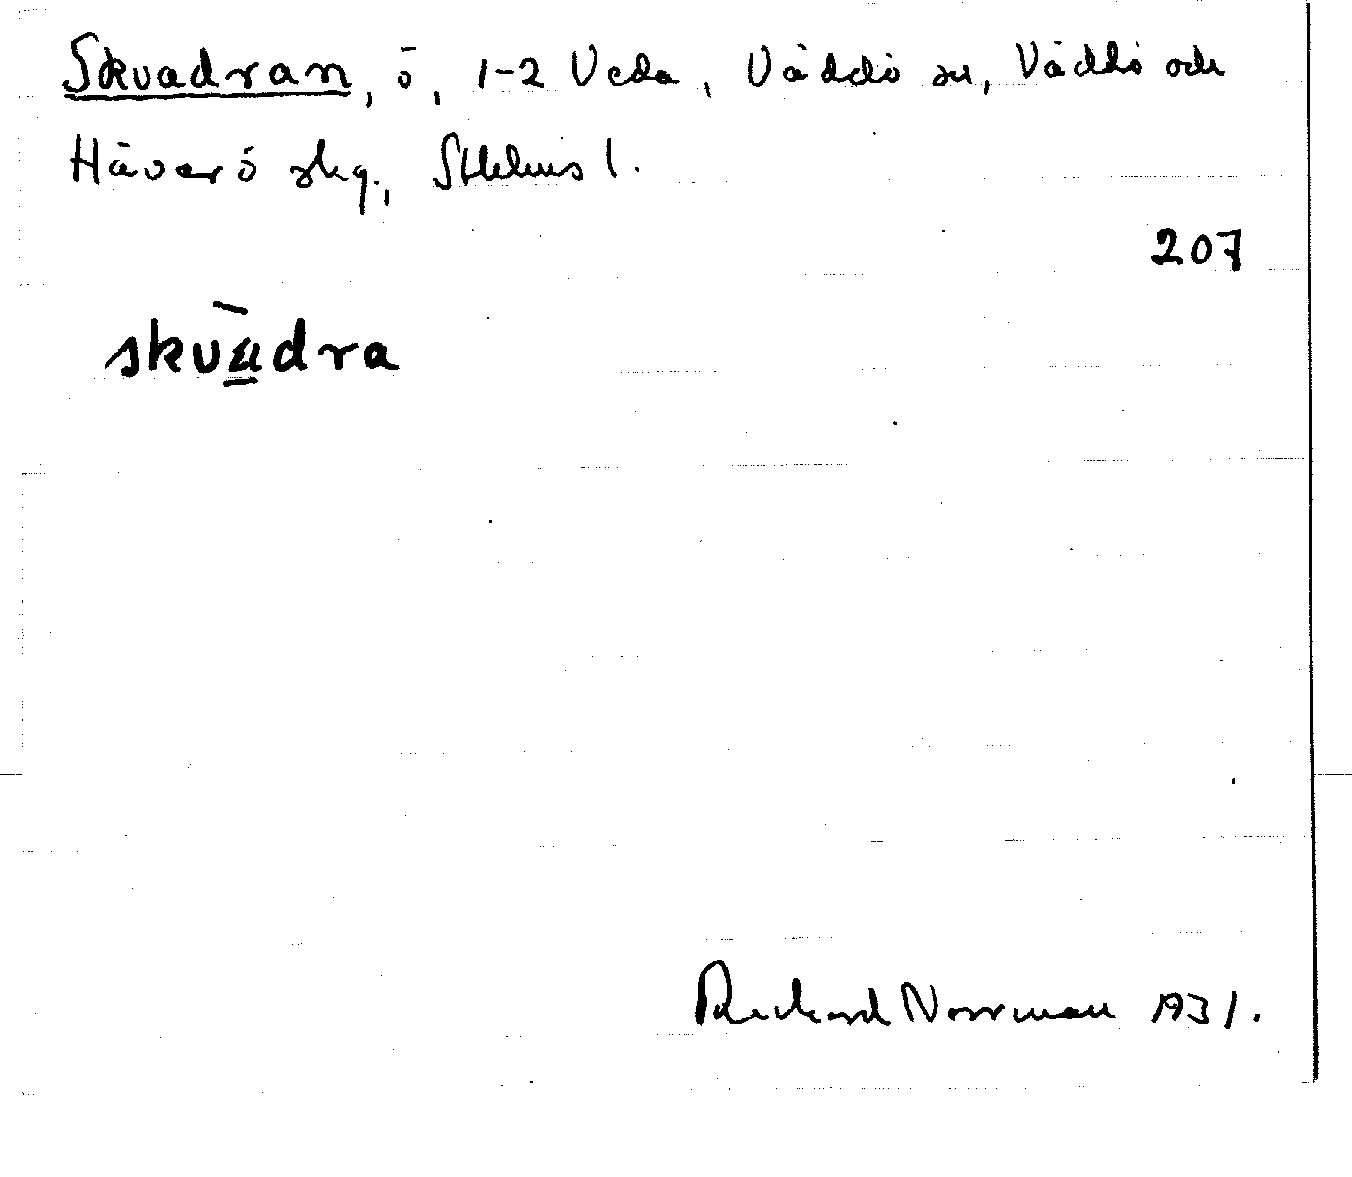 Skvadran, ö, 1-2 Veda, Väddö sn, Väddö och
Häverö skg., Sthlms l.
207
skvādra
Richard Norrman 1931.